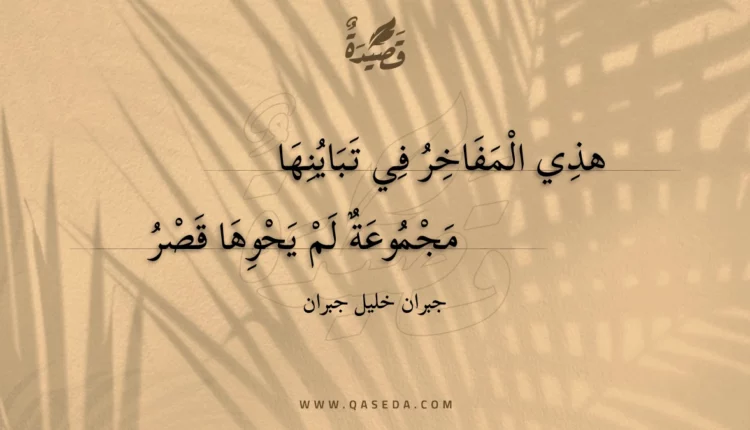 قَصِيدَةٌ
هذِي الْمَفَاخِرُ فِي تَبَايُنِهَا
مَجْمُوعَةٌ لَمْ يَحْوِهَا قَصْرُ
جبران خليل جبران
WWW.QASEDA.COM